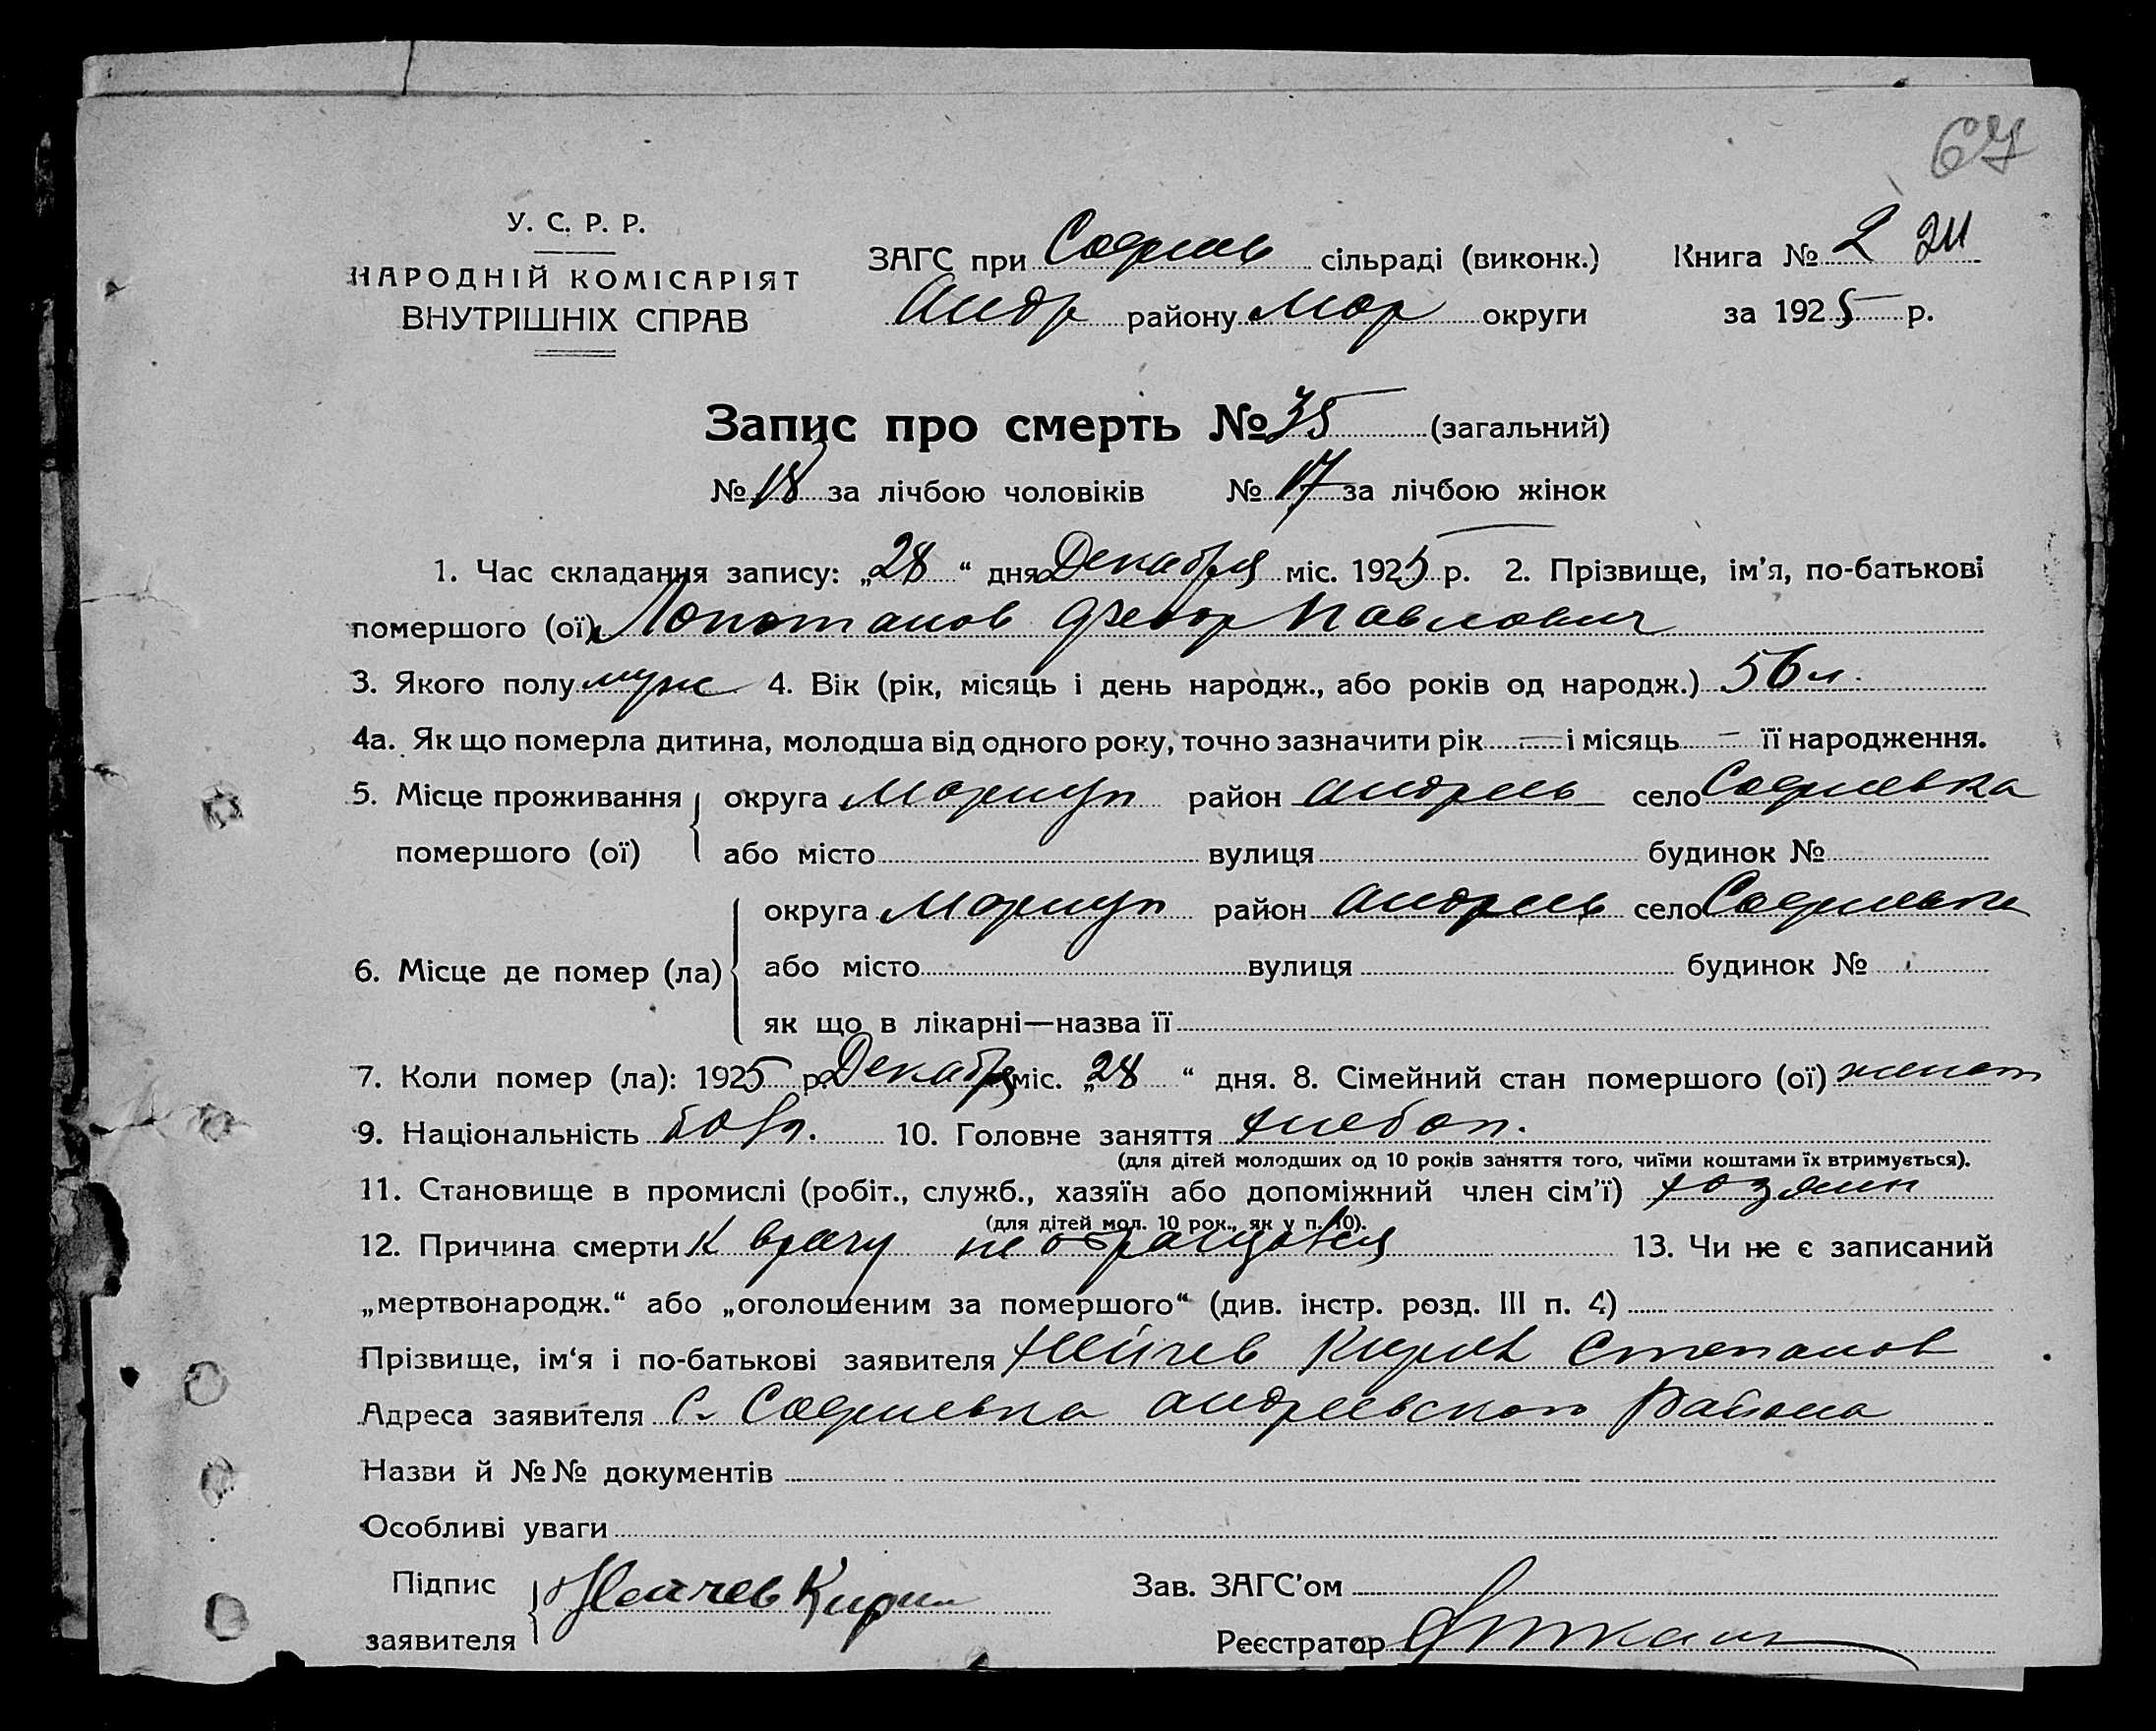 67
У. С. Р. Р.
НАРОДНІЙ КОМІСАРІЯТ
ВНУТРІШНІХ СПРАВ
ЗАГС при Софиев сільраді (виконк.) Книга № 2
Андр району Мар округи за 1925 р.
Запис про смерть № 35 (загальний)
№ 18 за лічбою чоловіків № 17 за лічбою жінок
1. Час складання запису: „28“ дня Декабря міс. 1925 р. 2. Прізвище, ім’я, по-батькові
помершого (ої) Феодор Павлович
3. Якого полу муж 4. Вік (рік, місяць і день народж., або років од народж.) 56 л.
4а. Як що померла дитина, молодша від одного року, точно зазначити рік — і місяць — її народження.
5. Місце проживання округа Мариуп район Андреев село Софиевка
помершого (ої) або місто вулиця будинок №
округа Мариуп район Андреев село Софиевка
6. Місце де помер (ла) або місто вулиця будинок №
як що в лікарні—назва її
7. Коли помер (ла): 1925 р. Декабря міс. „28“ дня. 8. Сімейний стан помершого (ої) женат
9. Національність болг. 10. Головне заняття хлебоп.
(для дітей молодших од 10 років заняття того, чиїми коштами їх втримується).
11. Становище в промислі (робіт., служб., хазяїн або допоміжний член сім’ї) хозяин
(для дітей мол. 10 рок., як у п. 10).
12. Причина смерти К врачу не обращался 13. Чи не є записаний
„мертвонародж.“ або „оголошеним за помершого“ (див. інстр. розд. III п. 4)
Прізвище, ім‘я і по-батькові заявителя Кирил Степанов
Адреса заявителя С. Софиевка Андреевского Района
Назви й №№ документів
Особливі уваги
Підпис Кирил Зав. ЗАГС’ом
заявителя Реєстратор